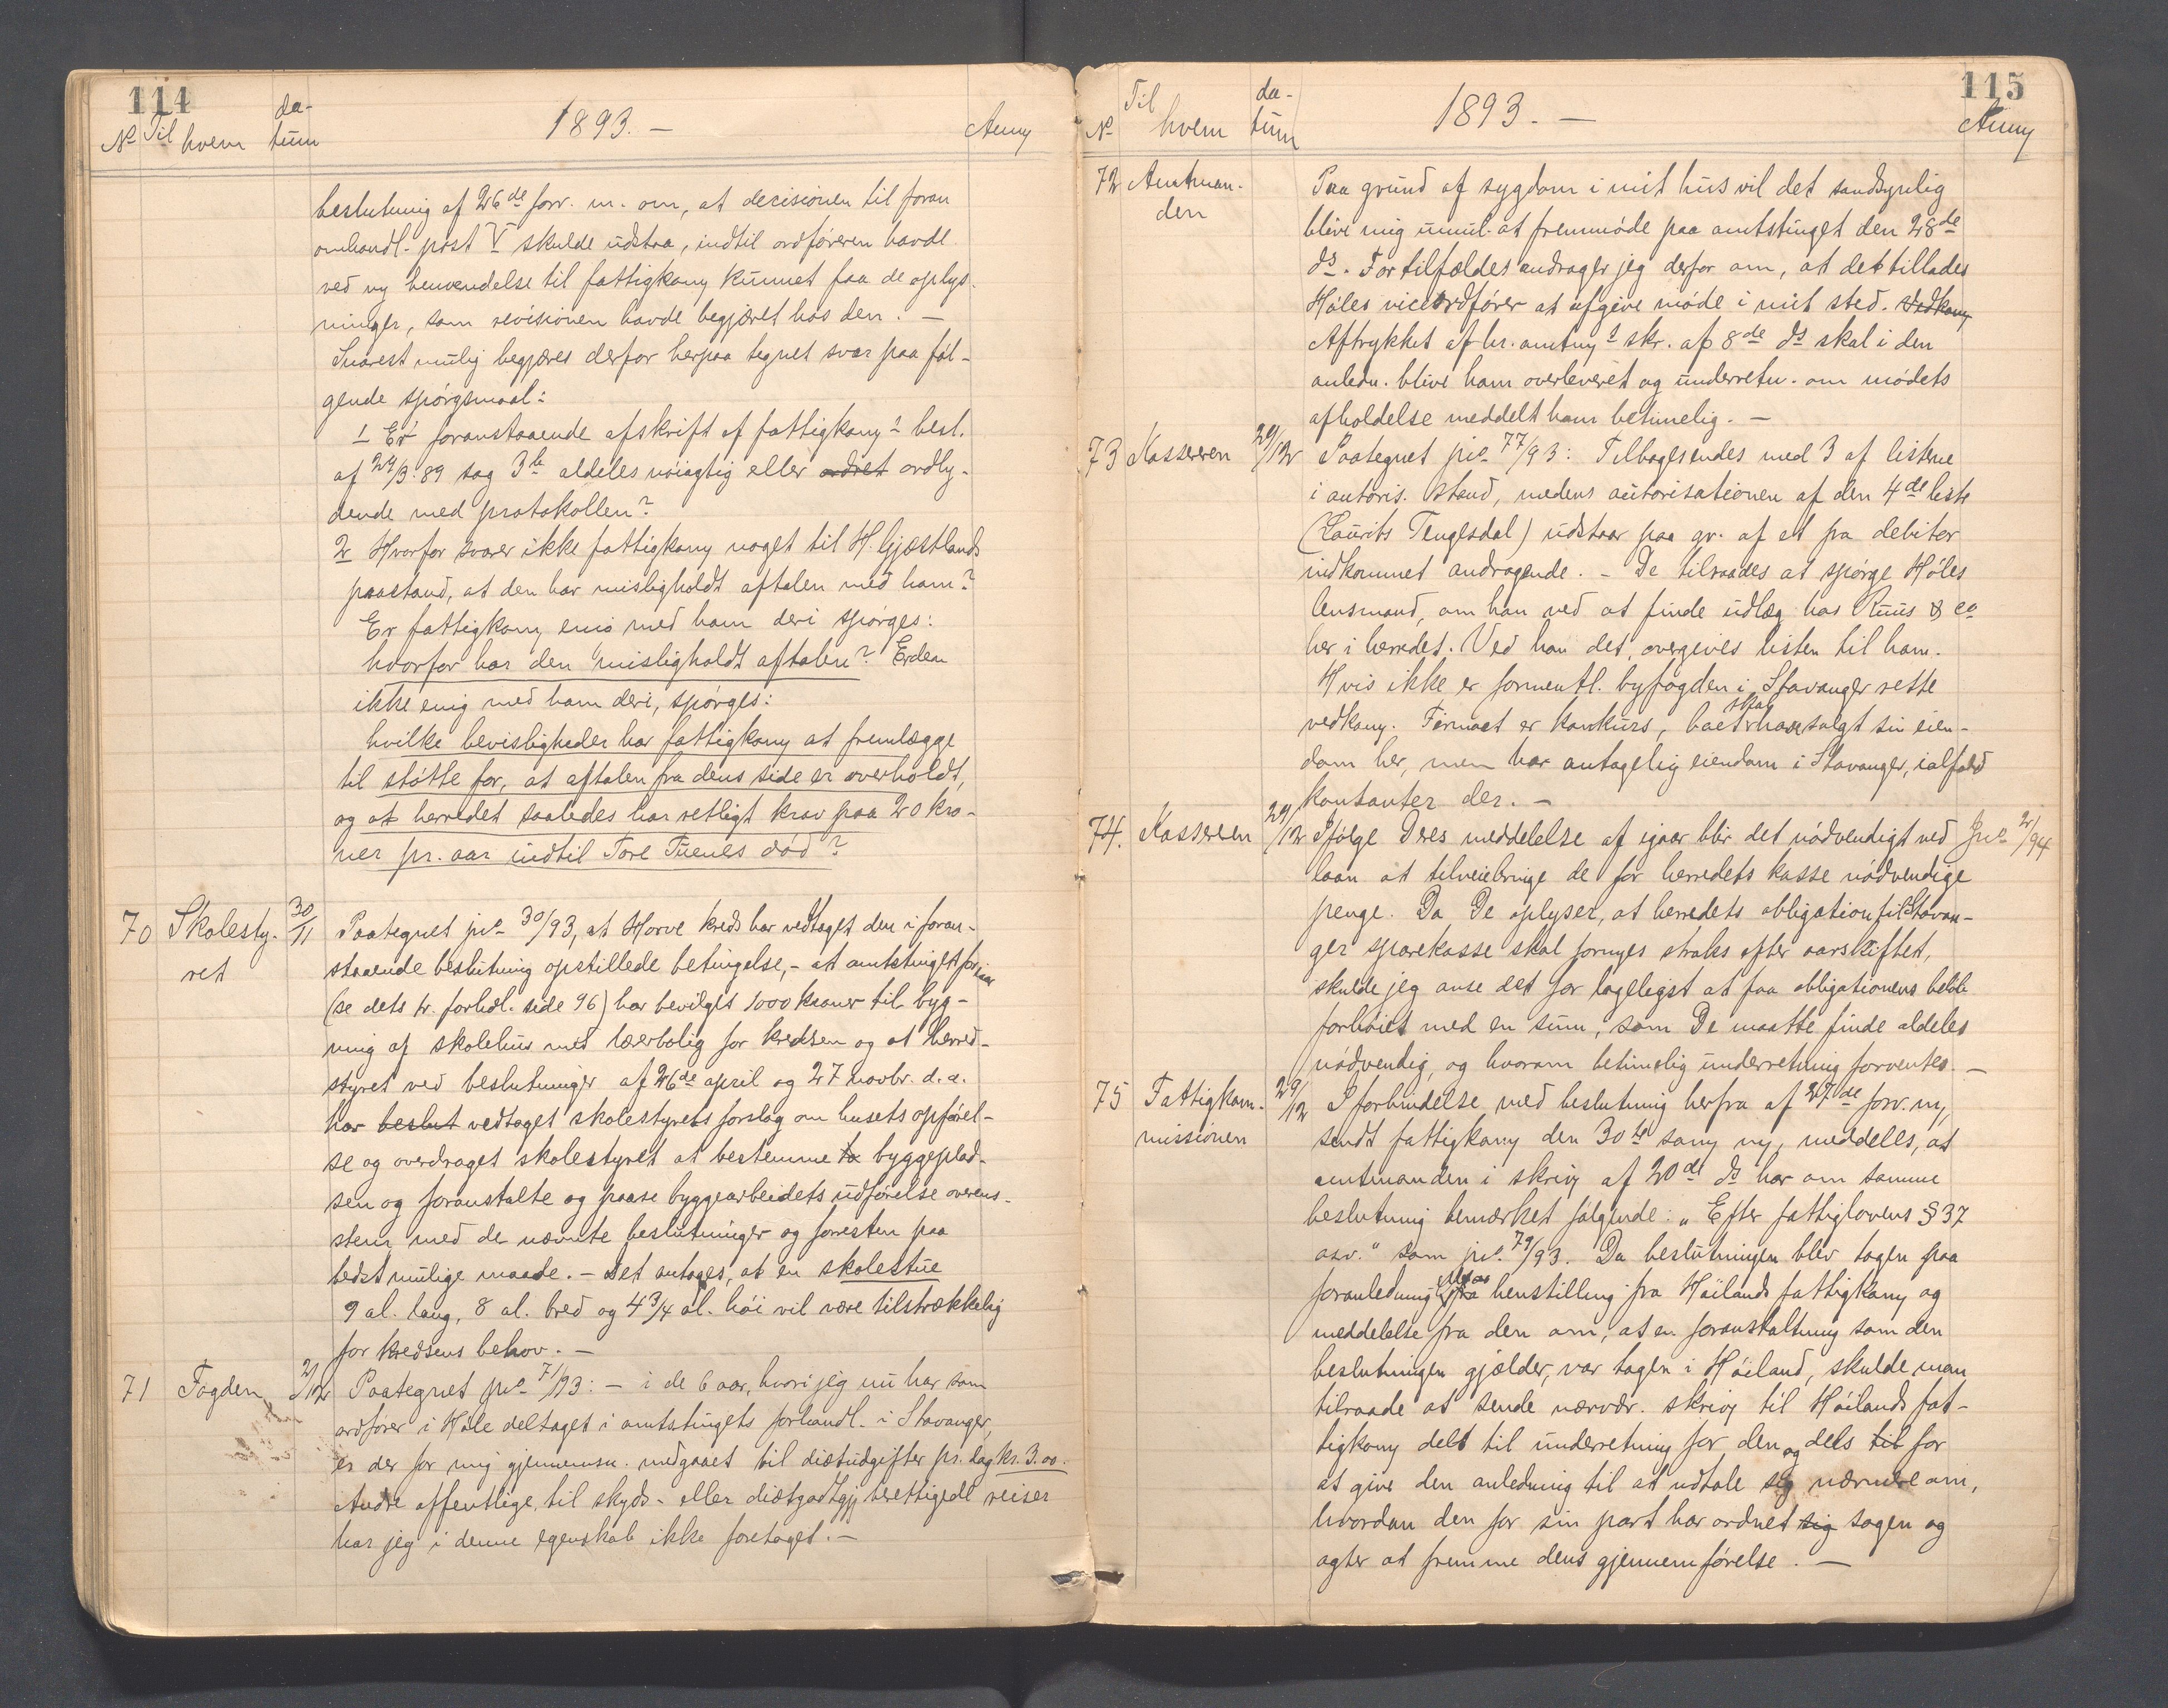 114
No Til hvem datum 1893. — Anm
beslutning af 26de forr. m. om, at decisionen til foran
omhandl. post V skulde udstaa, indtil ordföreren havde
ved ny henvendelse til fattigkom̄ kunnet faa de oplys-
ninger, som revisionen havde begjæret hos den. —
Snarest mulig begjæres derfor herpaa tegnet svar paa föl-
gende spörgsmaal:
1 Er foranstaaende afskrift af fattigkom̄s besl.
af 24/3. 89 sag 3b aldeles nöiagtig eller ordret ordly-
dende med protokollen?
2 Hvorfor svarer ikke fattigkom̄ noget til H. Gjæstlands
paastand, at den har misligholdt aftalen med ham?
Er fattigkom̄ enig med ham deri spörges:
hvorfor har den misligholdt aftalen? Er den
ikke enig med ham deri, spörges:
hvilke bevisligheder har fattigkom̄ at fremlægge
til stötte for, at aftalen fra dens side er overholdt,
og at herredet saaledes har retligt krav paa 20 kro-
ner pr. aar indtil Tore Tuenes död?
70 Skolesty-
ret 30/11 Paategnet jno 30/93, at Horve kreds har vedtaget den i foran-
staaende beslutning opstillede betingelse, - at amtstinget for iaar
(se dets tr. forhdl. side 96) har bevilget 1000 kroner til byg-
ning af skolehus med lærerbolig for kredsen og at herred-
styret ved beslutninger af 26de april og 27 novbr. d. a.
har beslut vedtaget skolestyrets forslag om husets opförel-
se og overdraget skolestyret at bestemme to byggeplad-
sen og foranstalte og paase byggearbeidets udförelse overens-
stem̄ med de nævnte beslutninger og forresten paa
bedst mulige maade. — Det antages, at en skolestue
9 al. lang, 8 al. bred og 4 3/4 al. höi vil være tilstrækkelig
for kredsens behov. —
71 Fogden 2/12 Paategnet jno 71/93: — i de 6 aar, hvori jeg nu har som
ordförer i Höle deltaget i amtstingets forhandl. i Stavanger,
er der for mig gjennemsn. medgaaet til diætudgifter pr. dag kr. 3.00.
Andre offentlige, til skyds- eller diætgodtgj berettigede reiser
har jeg i denne egenskab ikke foretaget. —
115
No Til hvem datum 1893. — Anm
72 Amtman-
den Paa grund af sygdom i mit hus vil det sandsynlig
blive mig umul. at fremmöde paa amtstinget den 28de
ds. For tilfældet andrager jeg derfor om, at det tillades
Höles viceordförer at afgive möde i mit sted. Vedkom̄
Aftrykket af hr. amtm̄s skr. af 8de ds skal i den
anledn. blive ham overleveret og underretn. om mödets
afholdelse meddelt ham betimelig. —
73 Kassereren 29/12 Paategnet jno 77/93: Tilbagesendes med 3 af listerne
i autoris. stand, medens autorisationen af den 4de liste
(Laurits Tengesdal) udstaar paa gr. af et fra debitor
indkommet andragende. - De tilraades at spörge Höles
lensmand, om han ved at finde udlæg hos Ruus & co
her i herredet. Ved han det, overgives listen til ham.
Hvis ikke er formentl. byfogden i Stavanger rette
vedkom̄. Firmaet er konkurs, skal solgt sin eien-
dom her, men har antagelig eiendom i Stavanger, ialfald
kontanter der. —
74. Kassereren 29/12 Ifölge Deres meddelelse af igaar blir det nödvendigt ved Jno 2/94
laan at tilveiebringe de for herredets kasse nödvendige
penge. Da De oplyser, at herredets obligation til Stavan-
ger sparekasse skal fornyes straks efter aarskiftet,
skulde jeg anse det for lageligst at faa obligationens belöb
forhöiet med en sum, som De maatte finde aldeles
nödvendig, og hvorom betimelig underretning forventes. —
75 Fattigkom-
missionen 29/12 I forbindelse med beslutning herfra af 27de forr. m,
sendt fattigkom̄ den 30te sam̄ m̄, meddeles, at
amtmanden i skriv̄ af 20de ds har om samme
beslutning bemærket fölgende: „Efter fattiglovens § 37
osv." som jno. 79/93. Da beslutningen blev tagen paa
foranledning fra henstilling fra Höilands fattigkom̄ og
meddelelse fra den om, at en foranstaltning som den
beslutningen gjælder, var tagen i Höiland, skulde man
tilraade at sende nærvær. skriv̄ til Höilands fat-
tigkom̄ dels til underretning for den og dels til for
at give den anledning til at udtale sig nærmere om,
hvordan den for sin part har ordnet sig sagen og
agter at fremme dens gjennemförelse. —